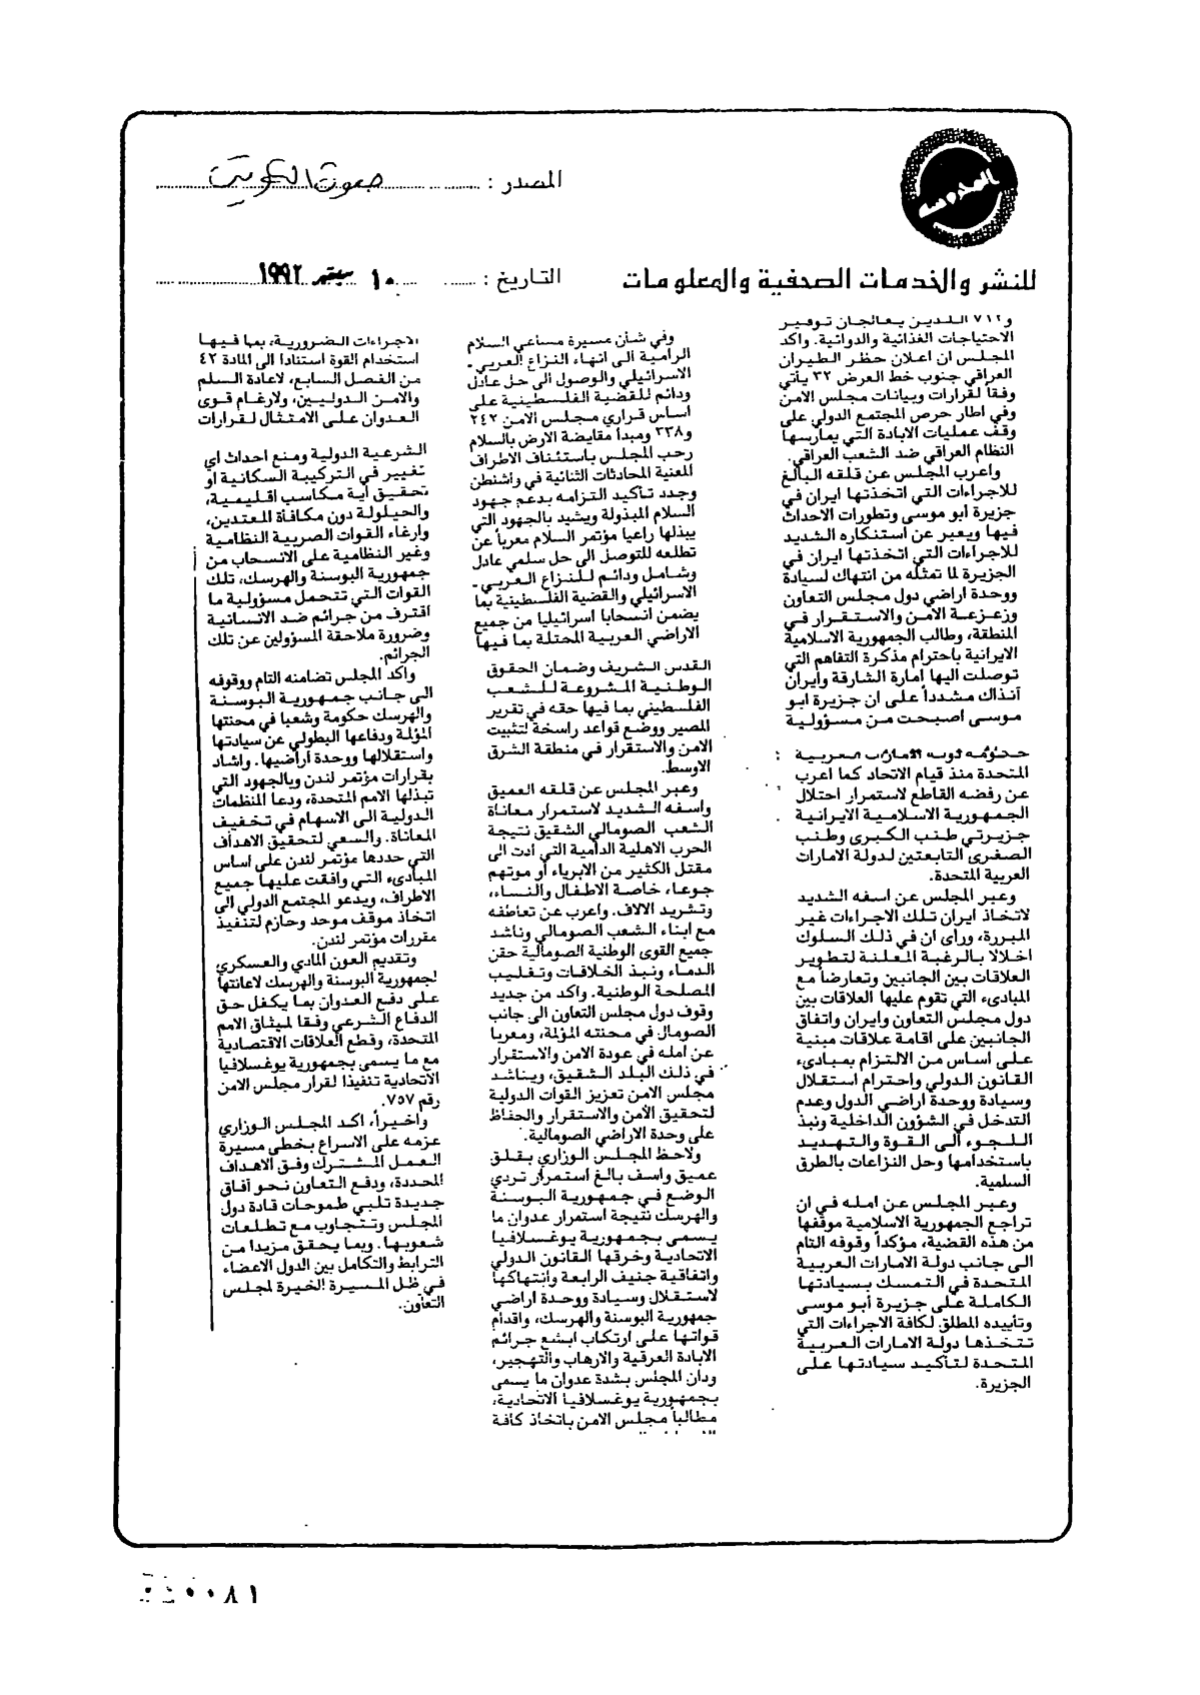 المصدر : صوت الكويت
المحروسة
للنشر والخدمات الصحفية والمعلومات
التاريخ : ١٠ سبتمبر ١٩٩٢
و٧١٢ اللذين يعالجان توفير
الاحتياجات الغذائية والدوائية. واكد
المجلس ان اعلان حظر الطيران
العراقي جنوب خط العرض ٣٢ يأتي
وفقا لقرارات وبيانات مجلس الامن
وفي اطار حرص المجتمع الدولي على
وقف عمليات الابادة التي يمارسها
النظام العراقي ضد الشعب العراقي.
واعرب المجلس عن قلقه البالغ
للاجراءات التي اتخذتها ايران في
جزيرة ابو موسى وتطورات الاحداث
فيها ويعبر عن استنكاره الشديد
للاجراءات التي اتخذتها ايران في
الجزيرة لما تمثله من انتهاك لسيادة
ووحدة اراضي دول مجلس التعاون
وزعزعة الامن والاستقرار في
المنطقة، وطالب الجمهورية الاسلامية
الايرانية باحترام مذكرة التفاهم التي
توصلت اليها امارة الشارقة وايران
آنذاك مشدداً على ان جزيرة ابو
موسى اصبحت من مسؤولية
حكومة دولة الامارات العربية
المتحدة منذ قيام الاتحاد كما اعرب
عن رفضه القاطع لاستمرار احتلال
الجمهورية الاسلامية الايرانية
جزيرتي طنب الكبرى وطنب
الصغرى التابعتين لدولة الامارات
العربية المتحدة.
وعبر المجلس عن اسفه الشديد
لاتخاذ ايران تلك الاجراءات غير
المبررة، ورأى ان في ذلك السلوك
اخلالا بالرغبة المعلنة لتطوير
العلاقات بين الجانبين وتعارضاً مع
المبادىء التي تقوم عليها العلاقات بين
دول مجلس التعاون وايران واتفاق
الجانبين على اقامة علاقات مبنية
على اساس من الالتزام بمبادىء
القانون الدولي واحترام استقلال
وسيادة ووحدة اراضي الدول وعدم
التدخل في الشؤون الداخلية ونبذ
اللجوء الى القوة والتهديد
باستخدامها وحل النزاعات بالطرق
السلمية.
وعبر المجلس عن امله في ان
تراجع الجمهورية الاسلامية موقفها
من هذه القضية، مؤكداً وقوفه التام
الى جانب دولة الامارات العربية
المتحدة في التمسك بسيادتها
الكاملة على جزيرة أبو موسى
وتأييده المطلق لكافة الاجراءات التي
تتخذها دولة الامارات العربية
المتحدة لتأكيد سيادتها على
الجزيرة.
وفي شأن مسيرة مساعي السلام
الرامية الى انهاء النزاع العربي ـ
الاسرائيلي والوصول الى حل عادل
ودائم للقضية الفلسطينية على
اساس قراري مجلس الامن ٢٤٢
و٣٣٨ ومبدأ مقايضة الارض بالسلام
رحب المجلس باستئناف الاطراف
المعنية المحادثات الثنائية في واشنطن
وجدد تأكيد التزامه بدعم جهود
السلام المبذولة ويشيد بالجهود التي
يبذلها راعيا مؤتمر السلام معرباً عن
تطلعه للتوصل الى حل سلمي عادل
وشامل ودائم للنزاع العربي ـ
الاسرائيلي والقضية الفلسطينية بما
يضمن انسحابا اسرائيليا من جميع
الاراضي العربية المحتلة بما فيها
القدس الشريف وضمان الحقوق
الوطنية المشروعة للشعب
الفلسطيني بما فيها حقه في تقرير
المصير ووضع قواعد راسخة لتثبيت
الامن والاستقرار في منطقة الشرق
الاوسط.
وعبر المجلس عن قلقه العميق
واسفه الشديد لاستمرار معاناة
الشعب الصومالي الشقيق نتيجة
الحرب الاهلية الدامية التي أدت الى
مقتل الكثير من الابرياء أو موتهم
جوعا، خاصة الاطفال والنساء،
وتشريد الالاف. واعرب عن تعاطفه
مع ابناء الشعب الصومالي وناشد
جميع القوى الوطنية الصومالية حقن
الدماء ونبذ الخلافات وتغليب
المصلحة الوطنية. واكد من جديد
وقوف دول مجلس التعاون الى جانب
الصومال في محنته المؤلمة، ومعربا
عن امله في عودة الامن والاستقرار
في ذلك البلد الشقيق، ويناشد
مجلس الامن تعزيز القوات الدولية
لتحقيق الأمن والاستقرار والحفاظ
على وحدة الاراضي الصومالية.
ولاحظ المجلس الوزاري بقلق
عميق واسف بالغ استمرار تردي
الوضع في جمهورية البوسنة
والهرسك نتيجة استمرار عدوان ما
يسمى بجمهورية يوغسلافيا
الاتحادية وخرقها القانون الدولي
واتفاقية جنيف الرابعة وانتهاكها
لاستقلال وسيادة ووحدة اراضي
جمهورية البوسنة والهرسك، واقدام
قواتها على ارتكاب ابشع جرائم
الابادة العرقية والارهاب والتهجير،
ودان المجلس بشدة عدوان ما يسمى
بجمهورية يوغسلافيا الاتحادية،
مطالباً مجلس الامن باتخاذ كافة
الاجراءات الضرورية، بما فيها
استخدام القوة استنادا الى المادة ٤٢
من الفصل السابع، لاعادة السلم
والامن الدوليين، ولارغام قوى
العدوان على الامتثال لقرارات
الشرعية الدولية ومنع احداث اي
تغيير في التركيبة السكانية أو
تحقيق أية مكاسب اقليمية،
والحيلولة دون مكافأة المعتدين،
وارغاء القوات الصربية النظامية
وغير النظامية على الانسحاب من
جمهورية البوسنة والهرسك، تلك
القوات التي تتحمل مسؤولية ما
اقترف من جرائم ضد الانسانية
وضرورة ملاحقة المسؤولين عن تلك
الجرائم.
واكد المجلس تضامنه التام ووقوفه
الى جانب جمهورية البوسنة
والهرسك حكومة وشعبا في محنتها
المؤلمة ودفاعها البطولي عن سيادتها
واستقلالها ووحدة أراضيها. واشاد
بقرارات مؤتمر لندن وبالجهود التي
تبذلها الامم المتحدة، ودعا المنظمات
الدولية الى الاسهام في تخفيف
المعاناة. والسعي لتحقيق الاهداف
التي حددها مؤتمر لندن على اساس
المبادىء التي وافقت عليها جميع
الاطراف، ويدعو المجتمع الدولي الى
اتخاذ موقف موحد وحازم لتنفيذ
مقررات مؤتمر لندن.
وتقديم العون المادي والعسكري
لجمهورية البوسنة والهرسك لاعانتها
على دفع العدوان بما يكفل حق
الدفاع الشرعي وفقا لميثاق الامم
المتحدة، وقطع العلاقات الاقتصادية
مع ما يسمى بجمهورية يوغسلافيا
الاتحادية تنفيذا لقرار مجلس الامن
رقم ٧٥٧.
واخيراً، اكد المجلس الوزاري
عزمه على الاسراع بخطى مسيرة
العمل المشترك وفق الاهداف
المحددة، ودفع التعاون نحو آفاق
جديدة تلبي طموحات قادة دول
المجلس وتتجاوب مع تطلعات
شعوبها. وبما يحقق مزيدا من
الترابط والتكامل بين الدول الاعضاء
في ظل المسيرة الخيرة لمجلس
التعاون.
٠٠٨١